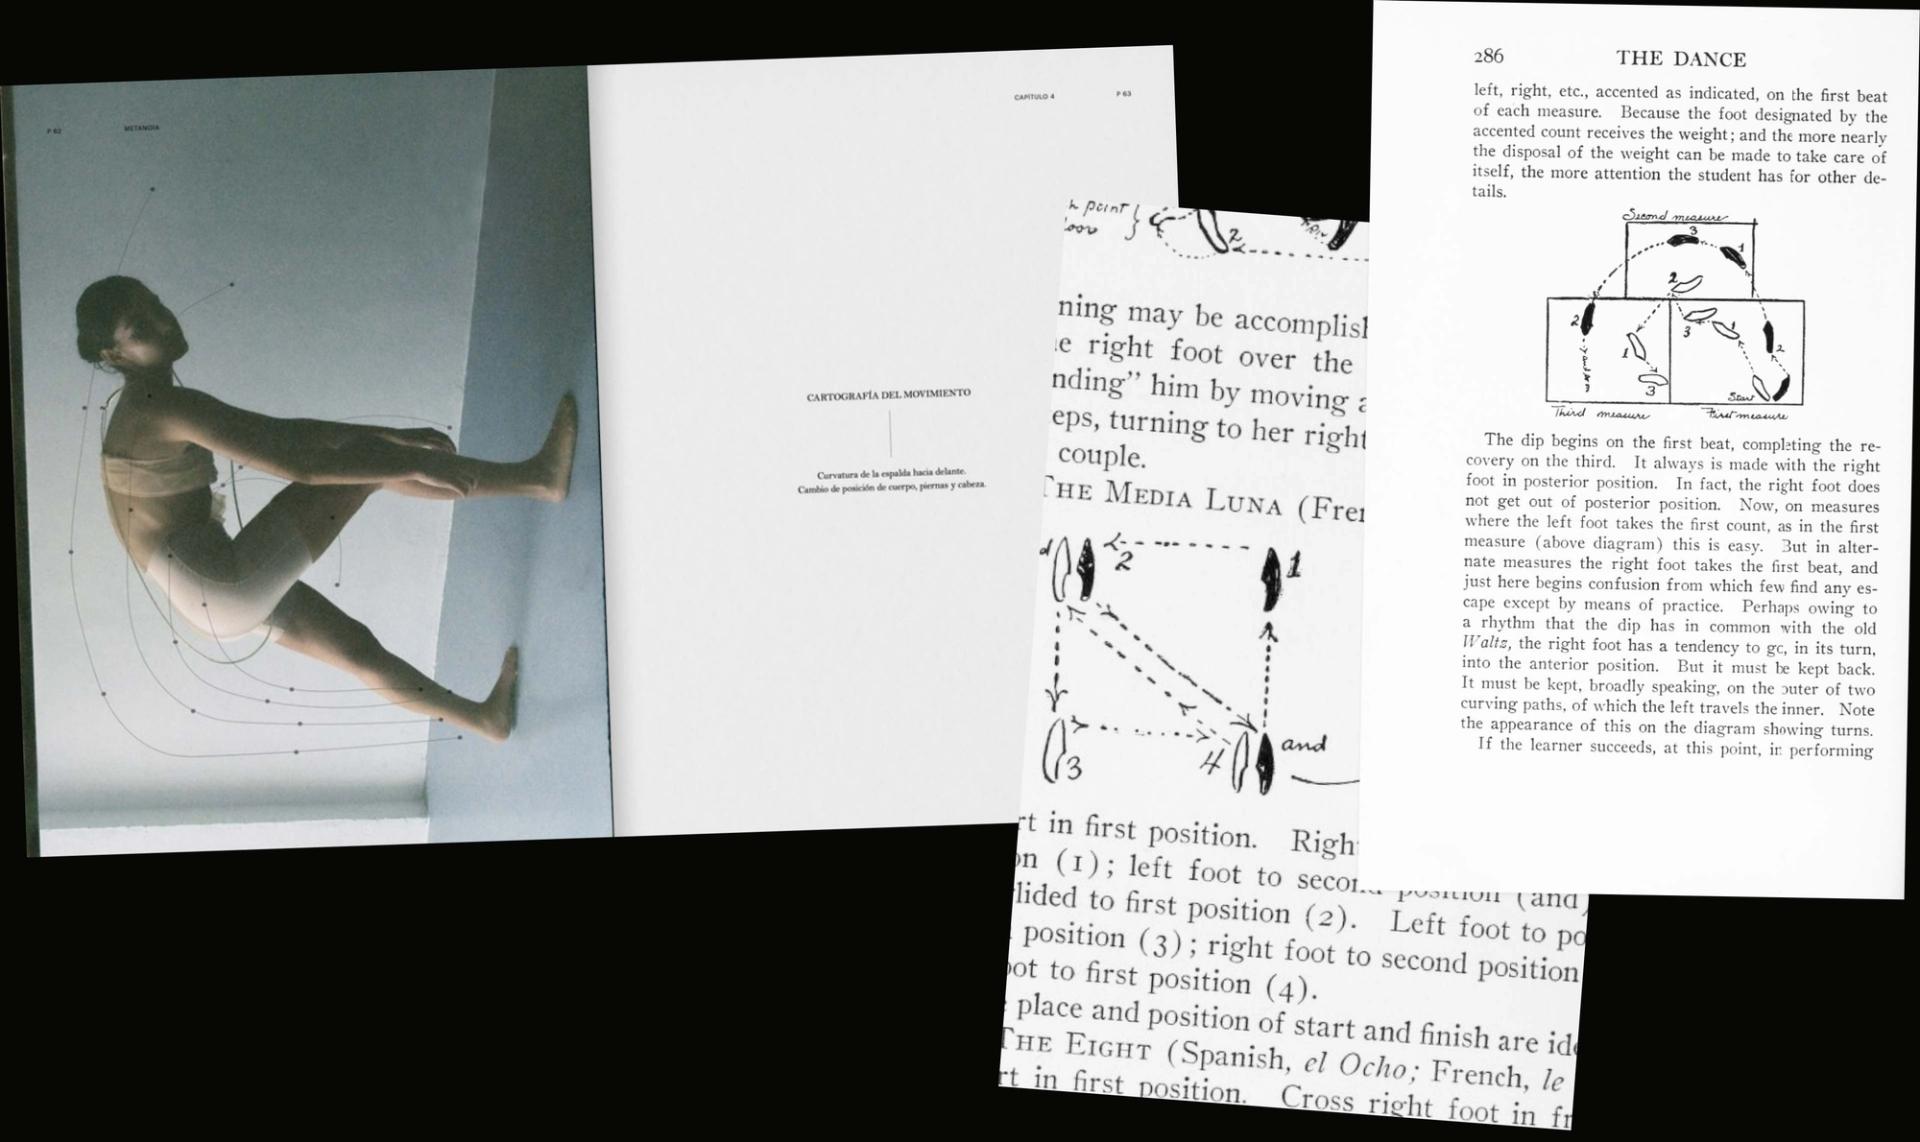 P 62 METANOIA
CAPÍTULO 4 P 63
CARTOGRAFÍA DEL MOVIMIENTO
Curvatura de la espalda hacia delante.
Cambio de posición de cuerpo, piernas y cabeza.
point
2
ning may be accomplish
e right foot over the
nding” him by moving a
eps, turning to her right
couple.
THE MEDIA LUNA (Fren
2 1
3 4 and
rt in first position. Righ
on (1); left foot to second position (and)
lided to first position (2). Left foot to po
position (3); right foot to second position
oot to first position (4).
place and position of start and finish are ide
THE EIGHT (Spanish, el Ocho; French, le
rt in first position. Cross right foot in fr
286 THE DANCE
left, right, etc., accented as indicated, on the first beat
of each measure. Because the foot designated by the
accented count receives the weight; and the more nearly
the disposal of the weight can be made to take care of
itself, the more attention the student has for other de-
tails.
Second measure
3 1
2
2 3 1
1 2
3 Start
Third measure First measure
The dip begins on the first beat, completing the re-
covery on the third. It always is made with the right
foot in posterior position. In fact, the right foot does
not get out of posterior position. Now, on measures
where the left foot takes the first count, as in the first
measure (above diagram) this is easy. But in alter-
nate measures the right foot takes the first beat, and
just here begins confusion from which few find any es-
cape except by means of practice. Perhaps owing to
a rhythm that the dip has in common with the old
Waltz, the right foot has a tendency to go, in its turn,
into the anterior position. But it must be kept back.
It must be kept, broadly speaking, on the outer of two
curving paths, of which the left travels the inner. Note
the appearance of this on the diagram showing turns.
If the learner succeeds, at this point, in performing